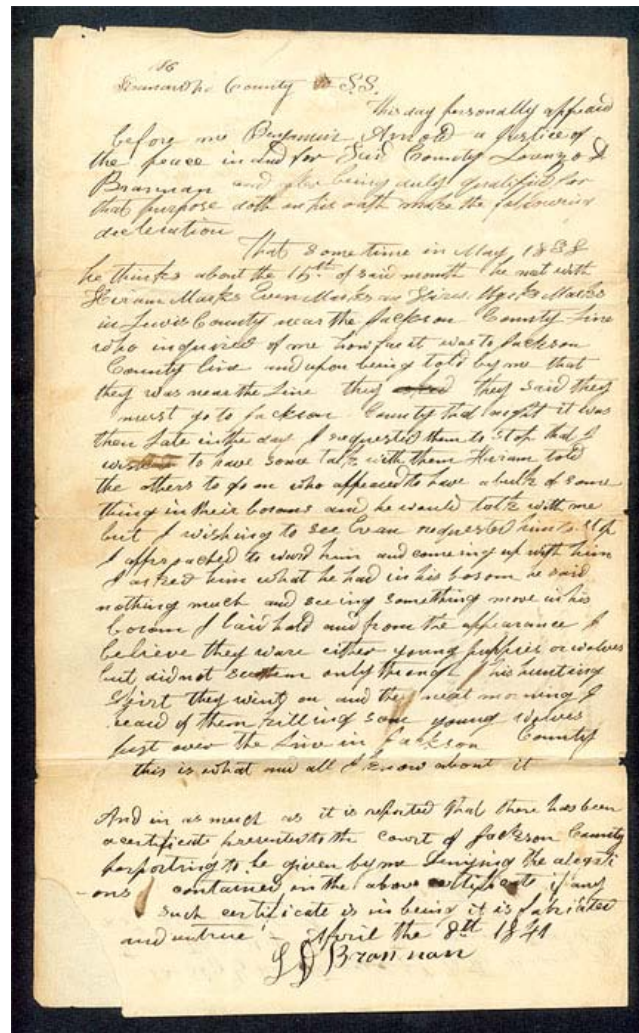 186
County to S.S.
This day personally appeaid
before me Benjamin Arnold a Justice of
the peace in and for Said County Lorenzo D
Branman and after being duly qualified for
that purpose doth on his oath make the following
decleration
That some time in May 1838
he thinks about the 15th of said month he met with
Hiram Marks Even Marks an Marks
in Lewis County near the Jackson County Line
who inquired of me how far it was to Jackson
County line and upon being told by me that
they was near the Line they they said they
must go to Jackson County that night it was
then Late in the day I requested them to stop that I
to have some talk with them Hiram told
the others to go on who appeared to have a bulk of some
thing in their bosoms and he would talk with me
but I wishing to see Evan requested him to stop
I approached to ward him and comeing up with him
I asked him what he had in his bosom he said
nothing much and seeing something move in his
bosom I laid hold and from the appearance I
believe they ware either young puppies or wolves
but did not see them only through his hunting
Shirt they went on and the next morning I
heard of them killing some young wolves
Just over the Line in Jackson County
this is what and all I know about it
And in as much as it is reported that there has been
a certificate presented to the court of Jackson County
porporting to be given by me denying the alegati
-ons contained in the above certificate if any
such certificate is in being it is fabricated
and untrue April the 8th 1841
L D Branman